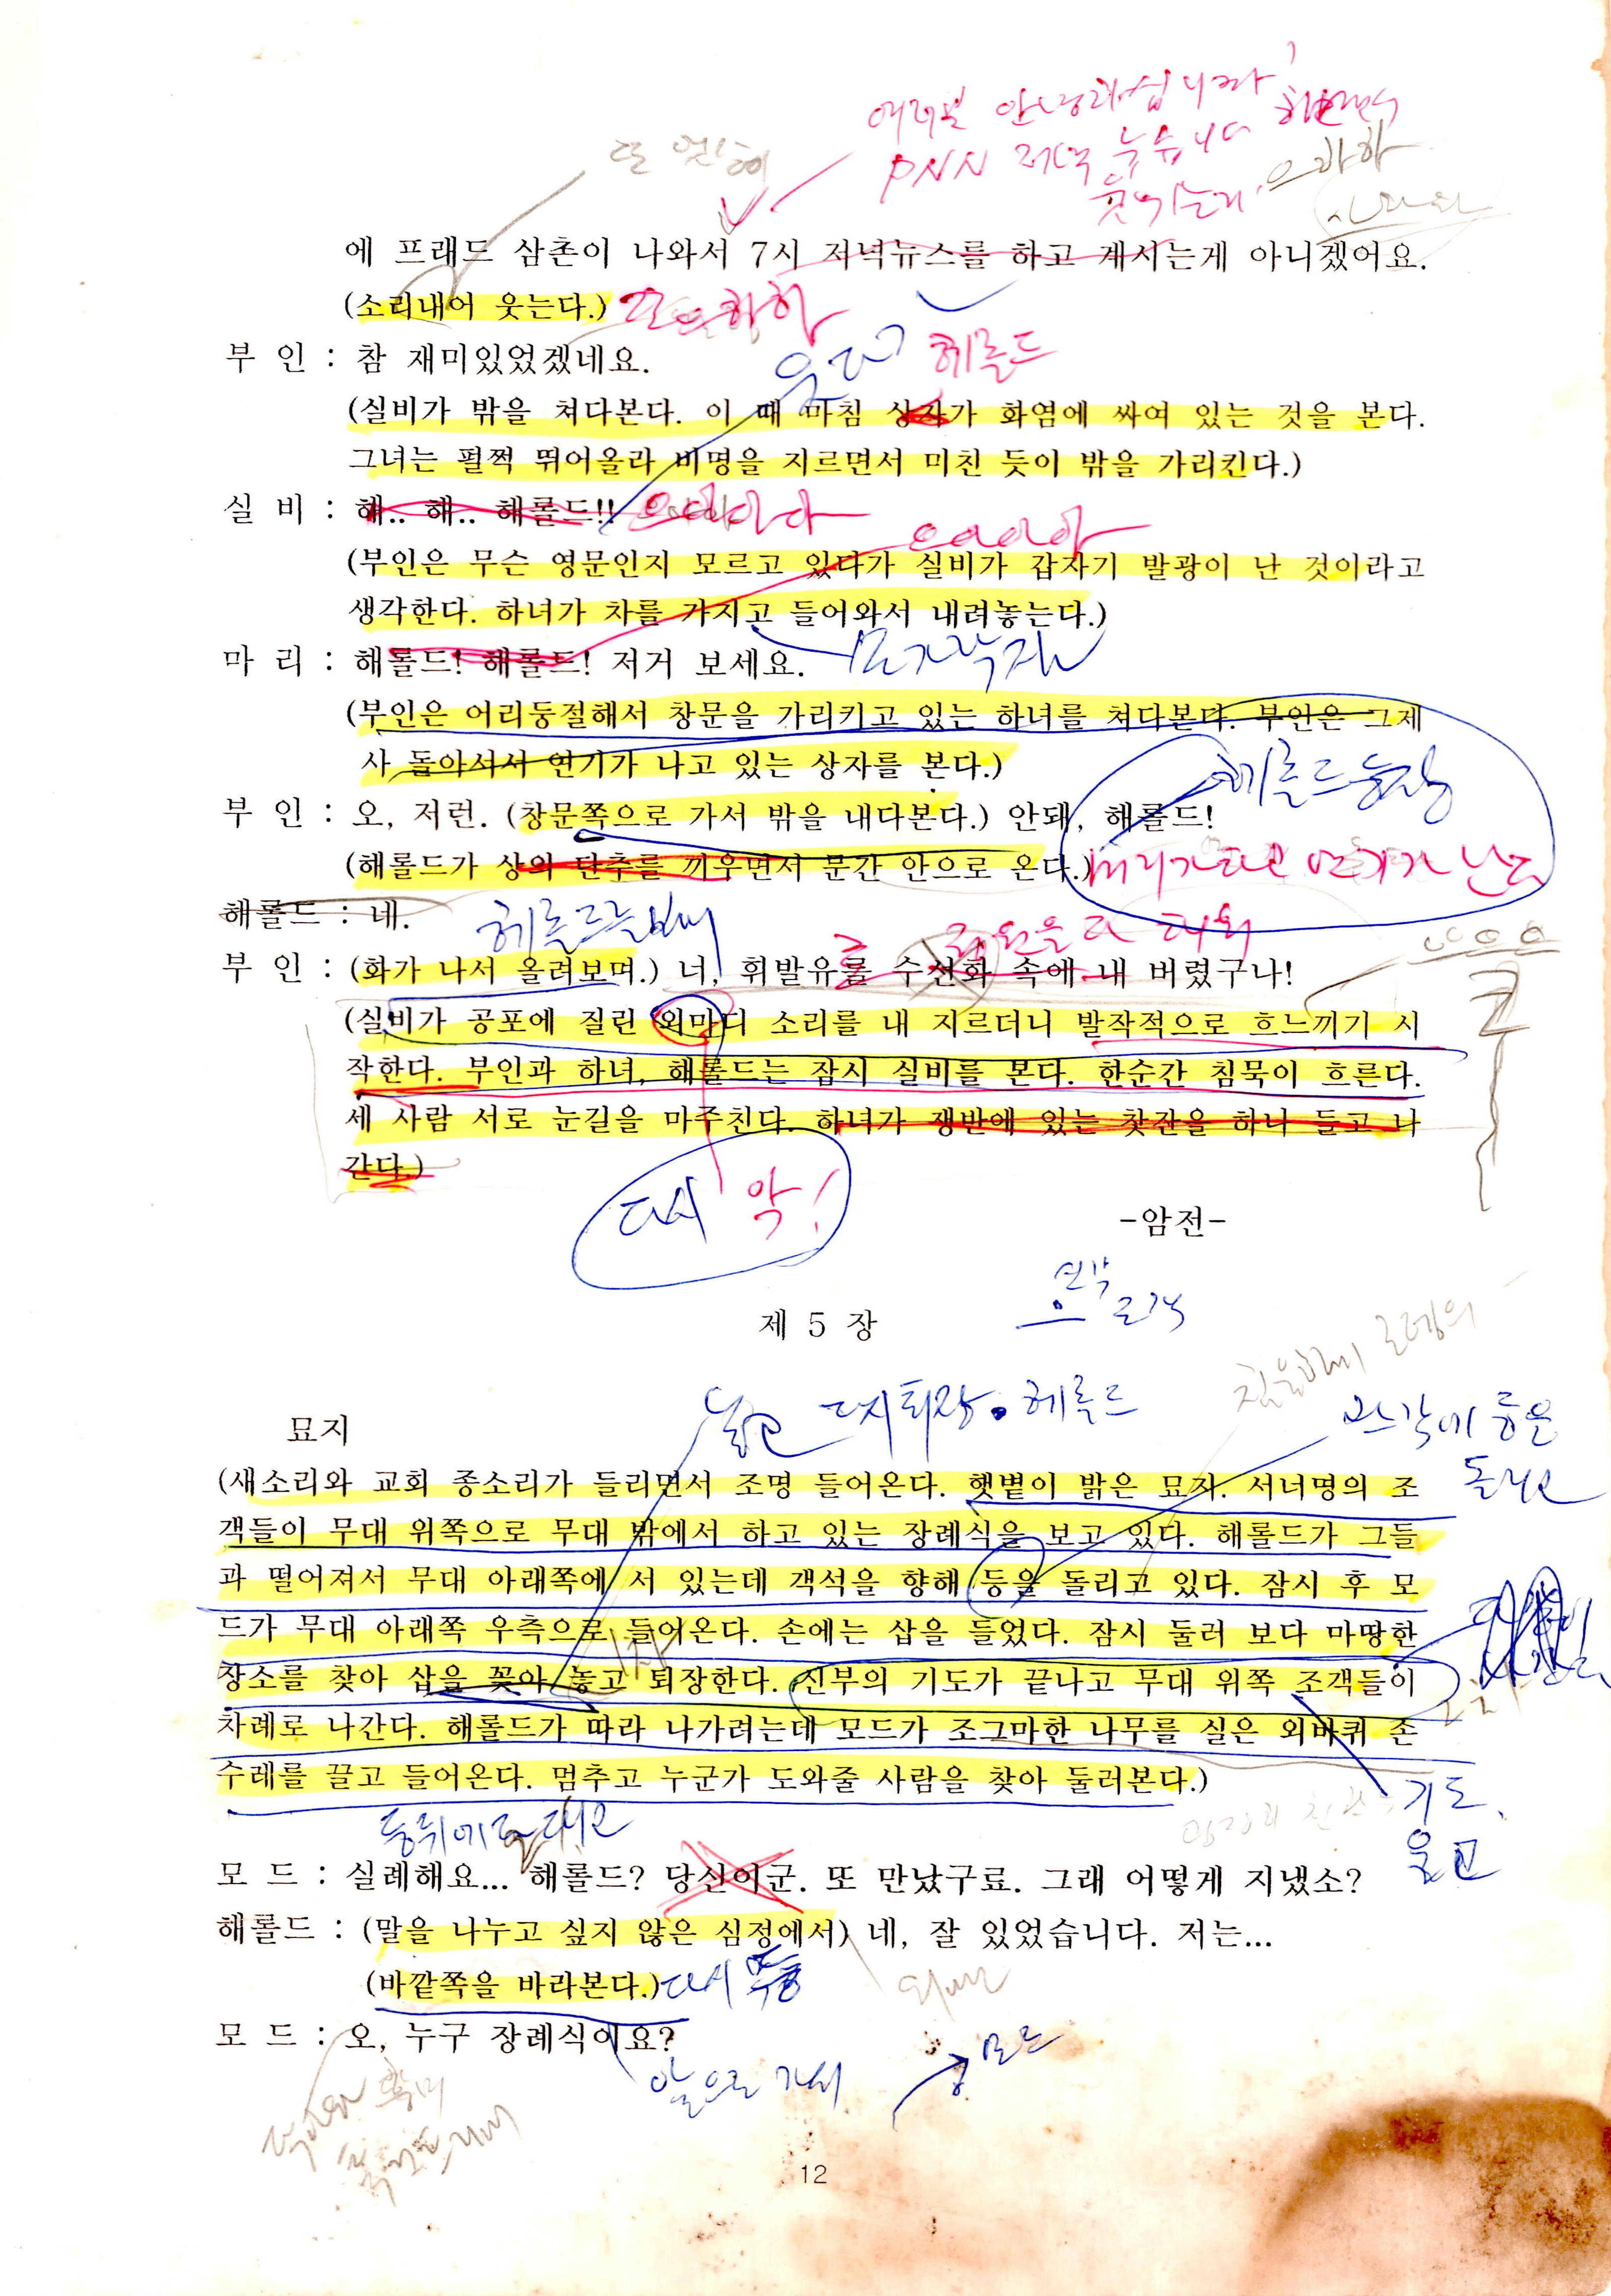 여러분 안녕하십니까
PNN 저녁 뉴습니다
웃기는
으하하
에 프래드 삼촌이 나와서 7시 저녁뉴스를 하고 계시는게 아니겠어요.
(소리내어 웃는다.)
부 인 : 참 재미있었겠네요.
헤롤드
(실비가 밖을 쳐다본다. 이 때 마침 상자가 화염에 싸여 있는 것을 본다.
그녀는 펄쩍 뛰어올라 비명을 지르면서 미친 듯이 밖을 가리킨다.)
실 비 : 해.. 해.. 해롤드!!
으아아아
(부인은 무슨 영문인지 모르고 있다가 실비가 갑자기 발광이 난 것이라고
생각한다. 하녀가 차를 가지고 들어와서 내려놓는다.)
마 리 : 해롤드! 해롤드! 저거 보세요.
(부인은 어리둥절해서 창문을 가리키고 있는 하녀를 쳐다본다. 부인은 그제
사 돌아서서 연기가 나고 있는 상자를 본다.)
헤롤드 등장
부 인 : 오, 저런. (창문쪽으로 가서 밖을 내다본다.) 안돼, 해롤드!
(해롤드가 상의 단추를 끼우면서 문간 안으로 온다.)
머리가 타고 연기가 난다
해롤드 : 네.
헤롤드를 보며
부 인 : (화가 나서 올려보며.) 너, 휘발유를 수선화 속에 내 버렸구나!
으으으
(실비가 공포에 질린 외마디 소리를 내 지르더니 발작적으로 흐느끼기 시
작한다. 부인과 하녀, 해롤드는 잠시 실비를 본다. 한순간 침묵이 흐른다.
세 사람 서로 눈길을 마주친다. 하녀가 쟁반에 있는 찻잔을 하나 들고 나
간다.)
다시 악!
-암전-
제 5 장
놓고 다시 퇴장. 헤롤드
묘지
등은
돌리고
(새소리와 교회 종소리가 들리면서 조명 들어온다. 햇볕이 밝은 묘자. 서너명의 조
객들이 무대 위쪽으로 무대 밖에서 하고 있는 장례식을 보고 있다. 해롤드가 그들
과 떨어져서 무대 아래쪽에 서 있는데 객석을 향해 등을 돌리고 있다. 잠시 후 모
드가 무대 아래쪽 우측으로 들어온다. 손에는 삽을 들었다. 잠시 둘러 보다 마땅한
장소를 찾아 삽을 꽂아 놓고 퇴장한다. 신부의 기도가 끝나고 무대 위쪽 조객들이
차례로 나간다. 해롤드가 따라 나가려는데 모드가 조그마한 나무를 실은 외바퀴 손
수레를 끌고 들어온다. 멈추고 누군가 도와줄 사람을 찾아 둘러본다.)
기도,
울고
모 드 : 실례해요... 해롤드? 당신이군. 또 만났구료. 그래 어떻게 지냈소?
해롤드 : (말을 나누고 싶지 않은 심정에서) 네, 잘 있었습니다. 저는...
(바깥쪽을 바라본다.)
다시
모 드 : 오, 누구 장례식이요?
앞으로 가서
모드
12